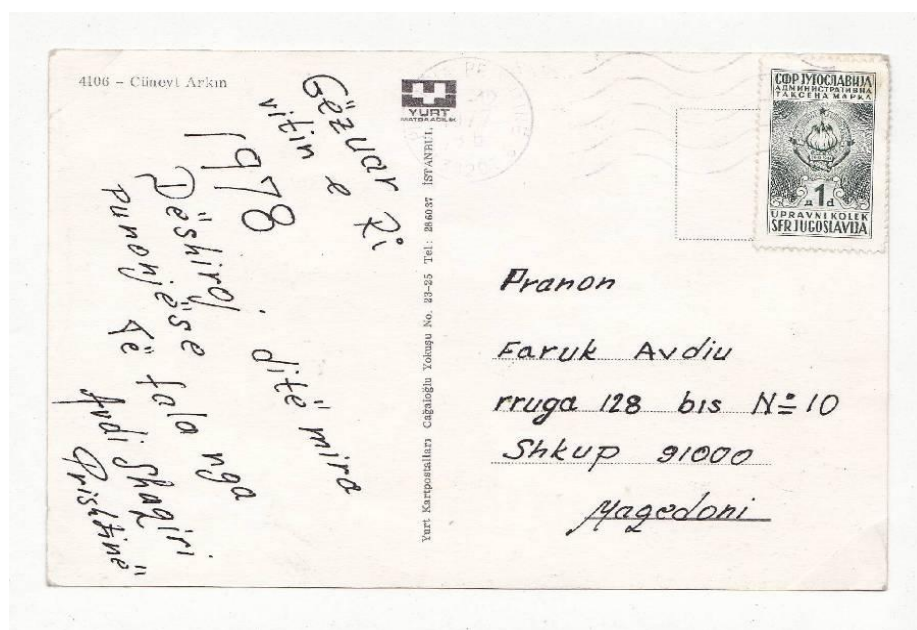 4106 – Cüneyt Arkın
YURT
Gëzuar
vitin e Ri
1978
Dëshiroj ditë mira
punonjëse të fala nga
Avdi Shaqiri
Prishtinë
Yurt Kartpostalları Cağaloğlu Yokuşu No. 23-25 Tel: 286037 İSTANBUL
СФР ЈУГОСЛАВИЈА
АДМИНИСТРАТИВНА
ТАКСЕНА МАРКА
д 1 d
UPRAVNI KOLEK
SFR JUGOSLAVIJA
Pranon
Faruk Avdiu
rruga 128 bis No 10
Shkup 91000
Magedoni